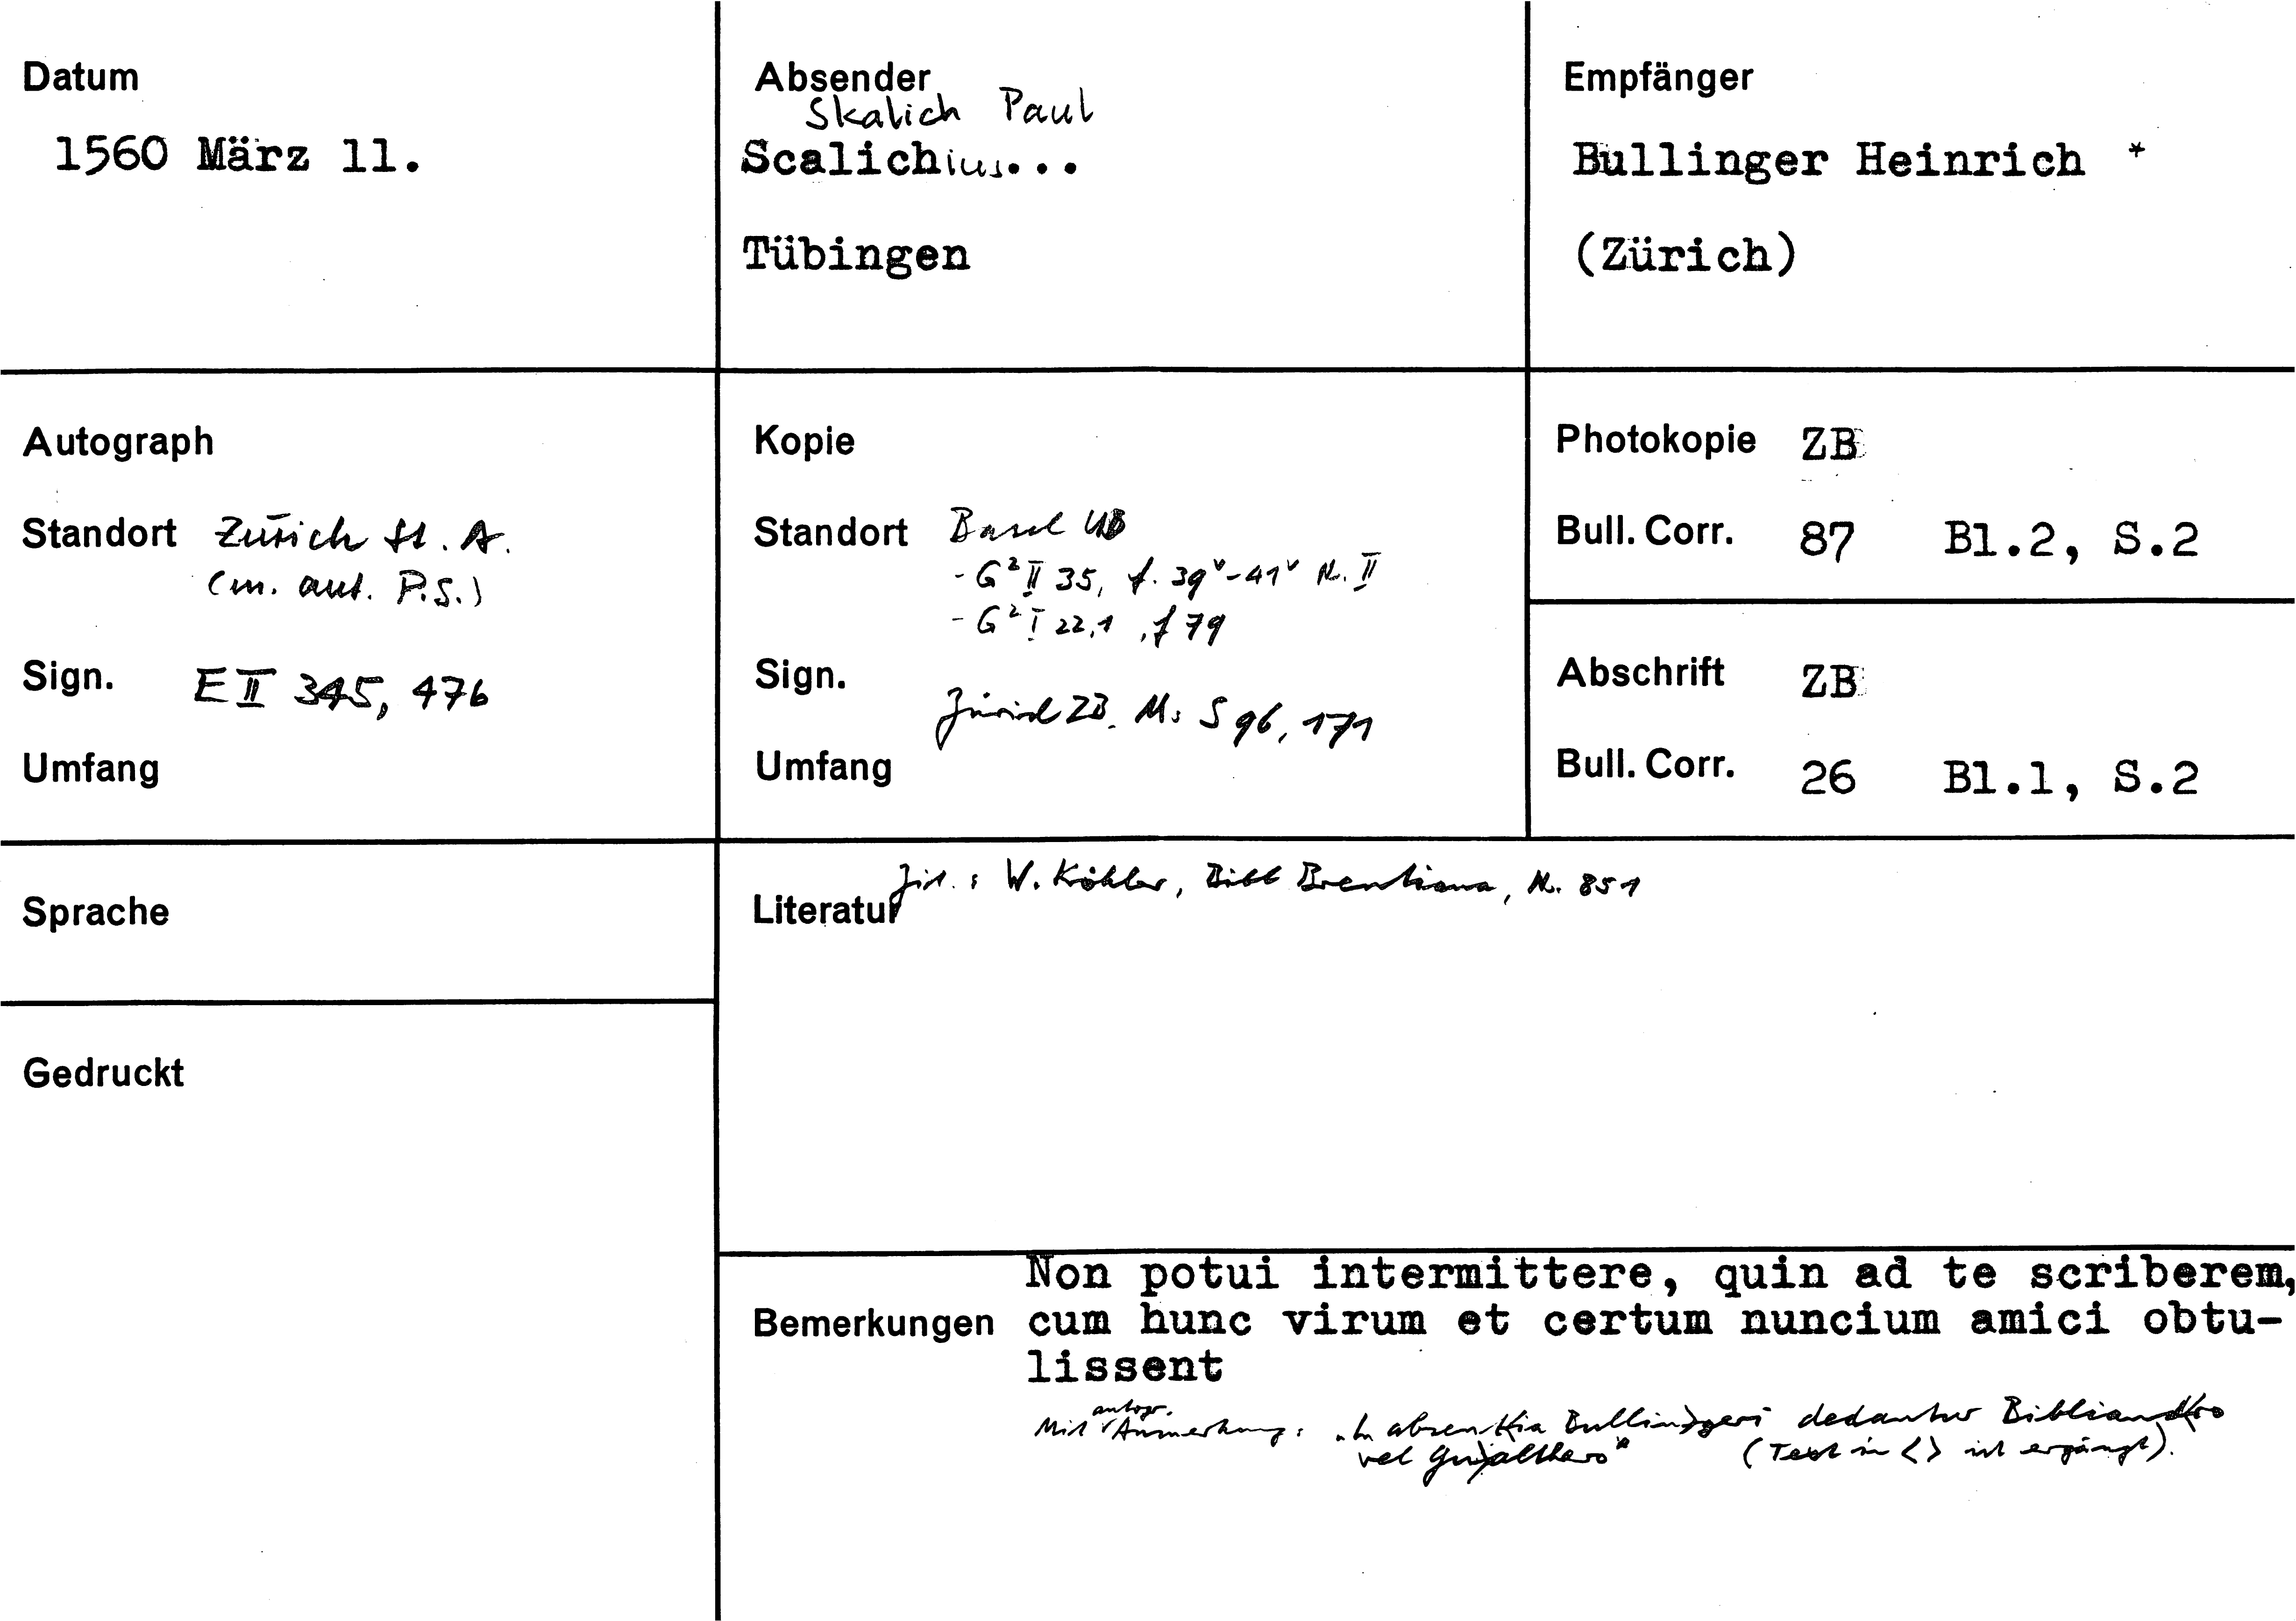 Datum
1560 März 11.
Absender
Skalich Paul
Scalichius...
Tübingen
Empfänger
Bullinger Heinrich *
(Zürich)
Autograph
Standort Zürich St. A.
(m. aut. P.S.)
Sign. E II 345, 476
Umfang
Kopie
Standort Basel UB
- G² II 35, f. 39ᵛ-41ᵛ N. II
- G² I 22,1, f 79
Sign.
Zürich ZB. Ms S 96, 171
Umfang
Photokopie ZB
Bull. Corr. 87 Bl.2, S.2
Abschrift ZB
Bull. Corr. 26 Bl.1, S.2
Sprache
Gedruckt
Zit.: W. Köhler, Bibl Brentiana, N. 851
Literatur
Non potui intermittere, quin ad te scriberem,
Bemerkungen cum hunc virum et certum nuncium amici obtu-
lissent
autogr.
Mit Anmerkung: "In absen<tia Bullin>geri dedantur Bibliand<ro
vel Gu>althero" (Text in < > ist ergänzt).